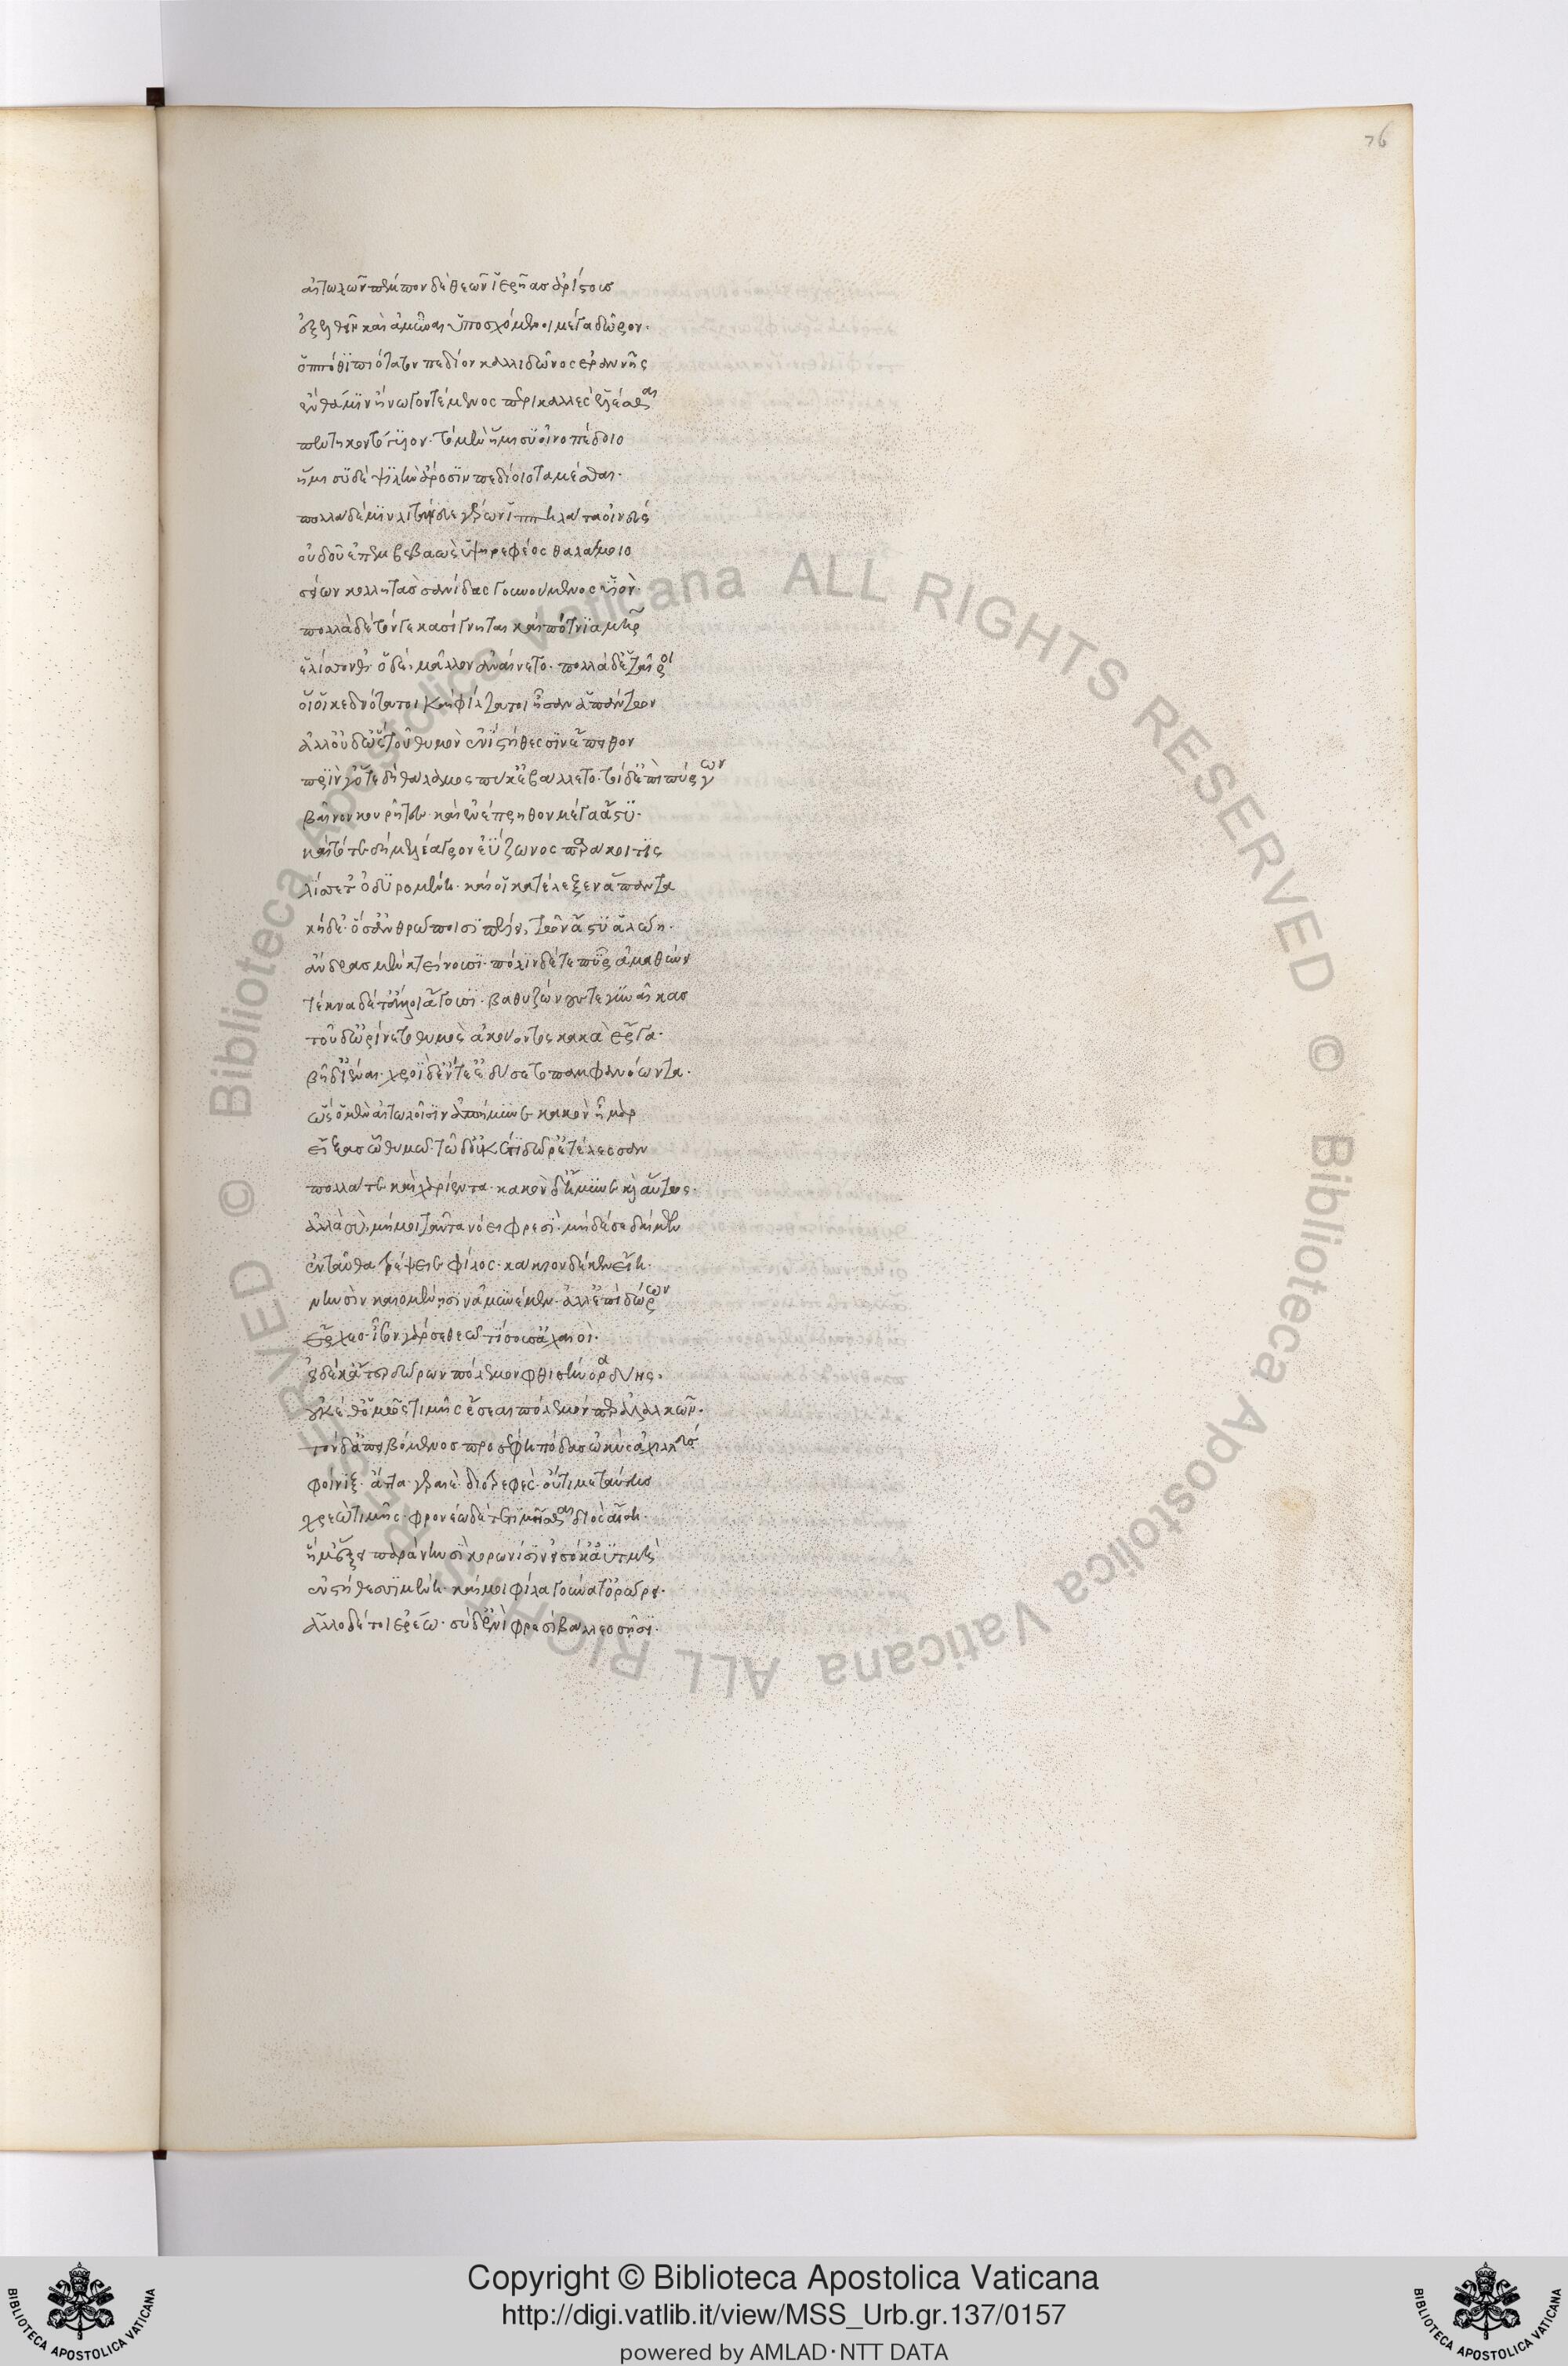 αἰτωλῶν πέμπον δὲ θεῶν ἱερῆας ἀρίστους
ἐξελθεῖν καὶ ἀμῦναι ὑποσχόμενοι μέγα δῶρον·
ὁππόθι πιότατον πεδίον καλλιδῶνος ἐραννῆς
ἔνθά μιν ἤνωγον τέμενος περικαλλὲς ἑλέσθαι
πεντηκοντόγυον· τὸ μὲν ἥμισυ οἰνοπέδοιο
ἥμισυ δὲ ψιλὴν ἄροσιν πεδίοιο ταμέσθαι·
πολλὰ δέ μιν λιτάνευε γέρων ἱππηλάτα οἰνεὺς
οὐδοῦ ἐπεμβεβαὼς ὑψηρεφέος θαλάμοιο
σείων κολλητὰς σανίδας γουνούμενος υἱόν·
πολλὰ δὲ τόν γε κασίγνηται καὶ πότνια μήτηρ
ἐλίσσονθ· ὁ δὲ μᾶλλον ἀναίνετο· πολλὰ δ' ἑταῖροι
οἵ οἱ κεδνότατοι καὶ φίλτατοι ἦσαν ἁπάντων
ἀλλ' οὐδ' ὧς τοῦ θυμὸν ἐνὶ στήθεσσιν ἔπειθον
πρίν γ' ὅτε δὴ θάλαμος πύκ' ἐβάλλετο· τοὶ δ' ἐπὶ πύργων
βαῖνον κουρῆτες· καὶ ἐνέπρηθον μέγα ἄστυ·
καὶ τότε δὴ μελέαγρον ἐΰζωνος παράκοιτις
λίσσετ' ὀδυρομένη· καί οἱ κατέλεξεν ἅπαντα
κήδε' ὅσ' ἀνθρώποισι πέλει, τῶν ἄστυ ἁλώῃ·
ἄνδρας μὲν κτείνουσι· πόλιν δέ τε πῦρ ἀμαθύνει
τέκνα δέ τ' ἄλλοι ἄγουσι· βαθυζώνους τε γυναῖκας
τοῦ δ' ὠρίνετο θυμὸς ἀκούοντος κακὰ ἔργα·
βῆ δ' ἰέναι· χροῒ δ' ἔντε' ἐδύσατο παμφανόωντα·
ὣς ὁ μὲν αἰτωλοῖσιν ἀπήμυνε κακὸν ἦμαρ
εἴξας ᾧ θυμῷ· τῷ δ' οὐκέτι δῶρ' ἐτέλεσσαν
πολλά τε καὶ χαρίεντα· κακὸν δ' ἤμυνε καὶ αὕτως·
ἀλλὰ σὺ μή μοι ταῦτα νόει φρεσὶ· μὴ δέ σε δαίμων
ἐνταῦθα τρέψειε φίλος· κάκιον δέ κεν εἴη·
νηυσὶν καιομένῃσιν ἀμυνέμεν· ἀλλ' ἐπὶ δώρων
ἔρχεο· ἶσον γάρ σε θεῷ τίσουσιν ἀχαιοί·
εἰ δέ κ' ἄτερ δώρων πόλεμον φθισήνορα δύῃς·
οὐκέθ' ὁμῶς τιμῆς ἔσεαι πόλεμόν περ ἀλαλκών·
τὸν δ' ἀπαμειβόμενος προσέφη πόδας ὠκὺς ἀχιλλεύς
φοῖνιξ ἄττα γεραιὲ διοτρεφὲς· οὔτι με ταύτης
χρεὼ τιμῆς· φρονέω δὲ τετιμῆσθαι διὸς αἴσῃ·
ἥ μ' ἕξει παρὰ νηυσὶ κορωνίσιν εἰσόκ' ἀϋτμὴ
ἐν στήθεσσι μένῃ· καί μοι φίλα γούνατ' ὀρώρῃ·
ἄλλο δέ τοι ἐρέω· σὺ δ' ἐνὶ φρεσὶ βάλλεο σῇσι·
76
Copyright © Biblioteca Apostolica Vaticana
http://digi.vatlib.it/view/MSS_Urb.gr.137/0157
powered by AMLAD·NTT DATA